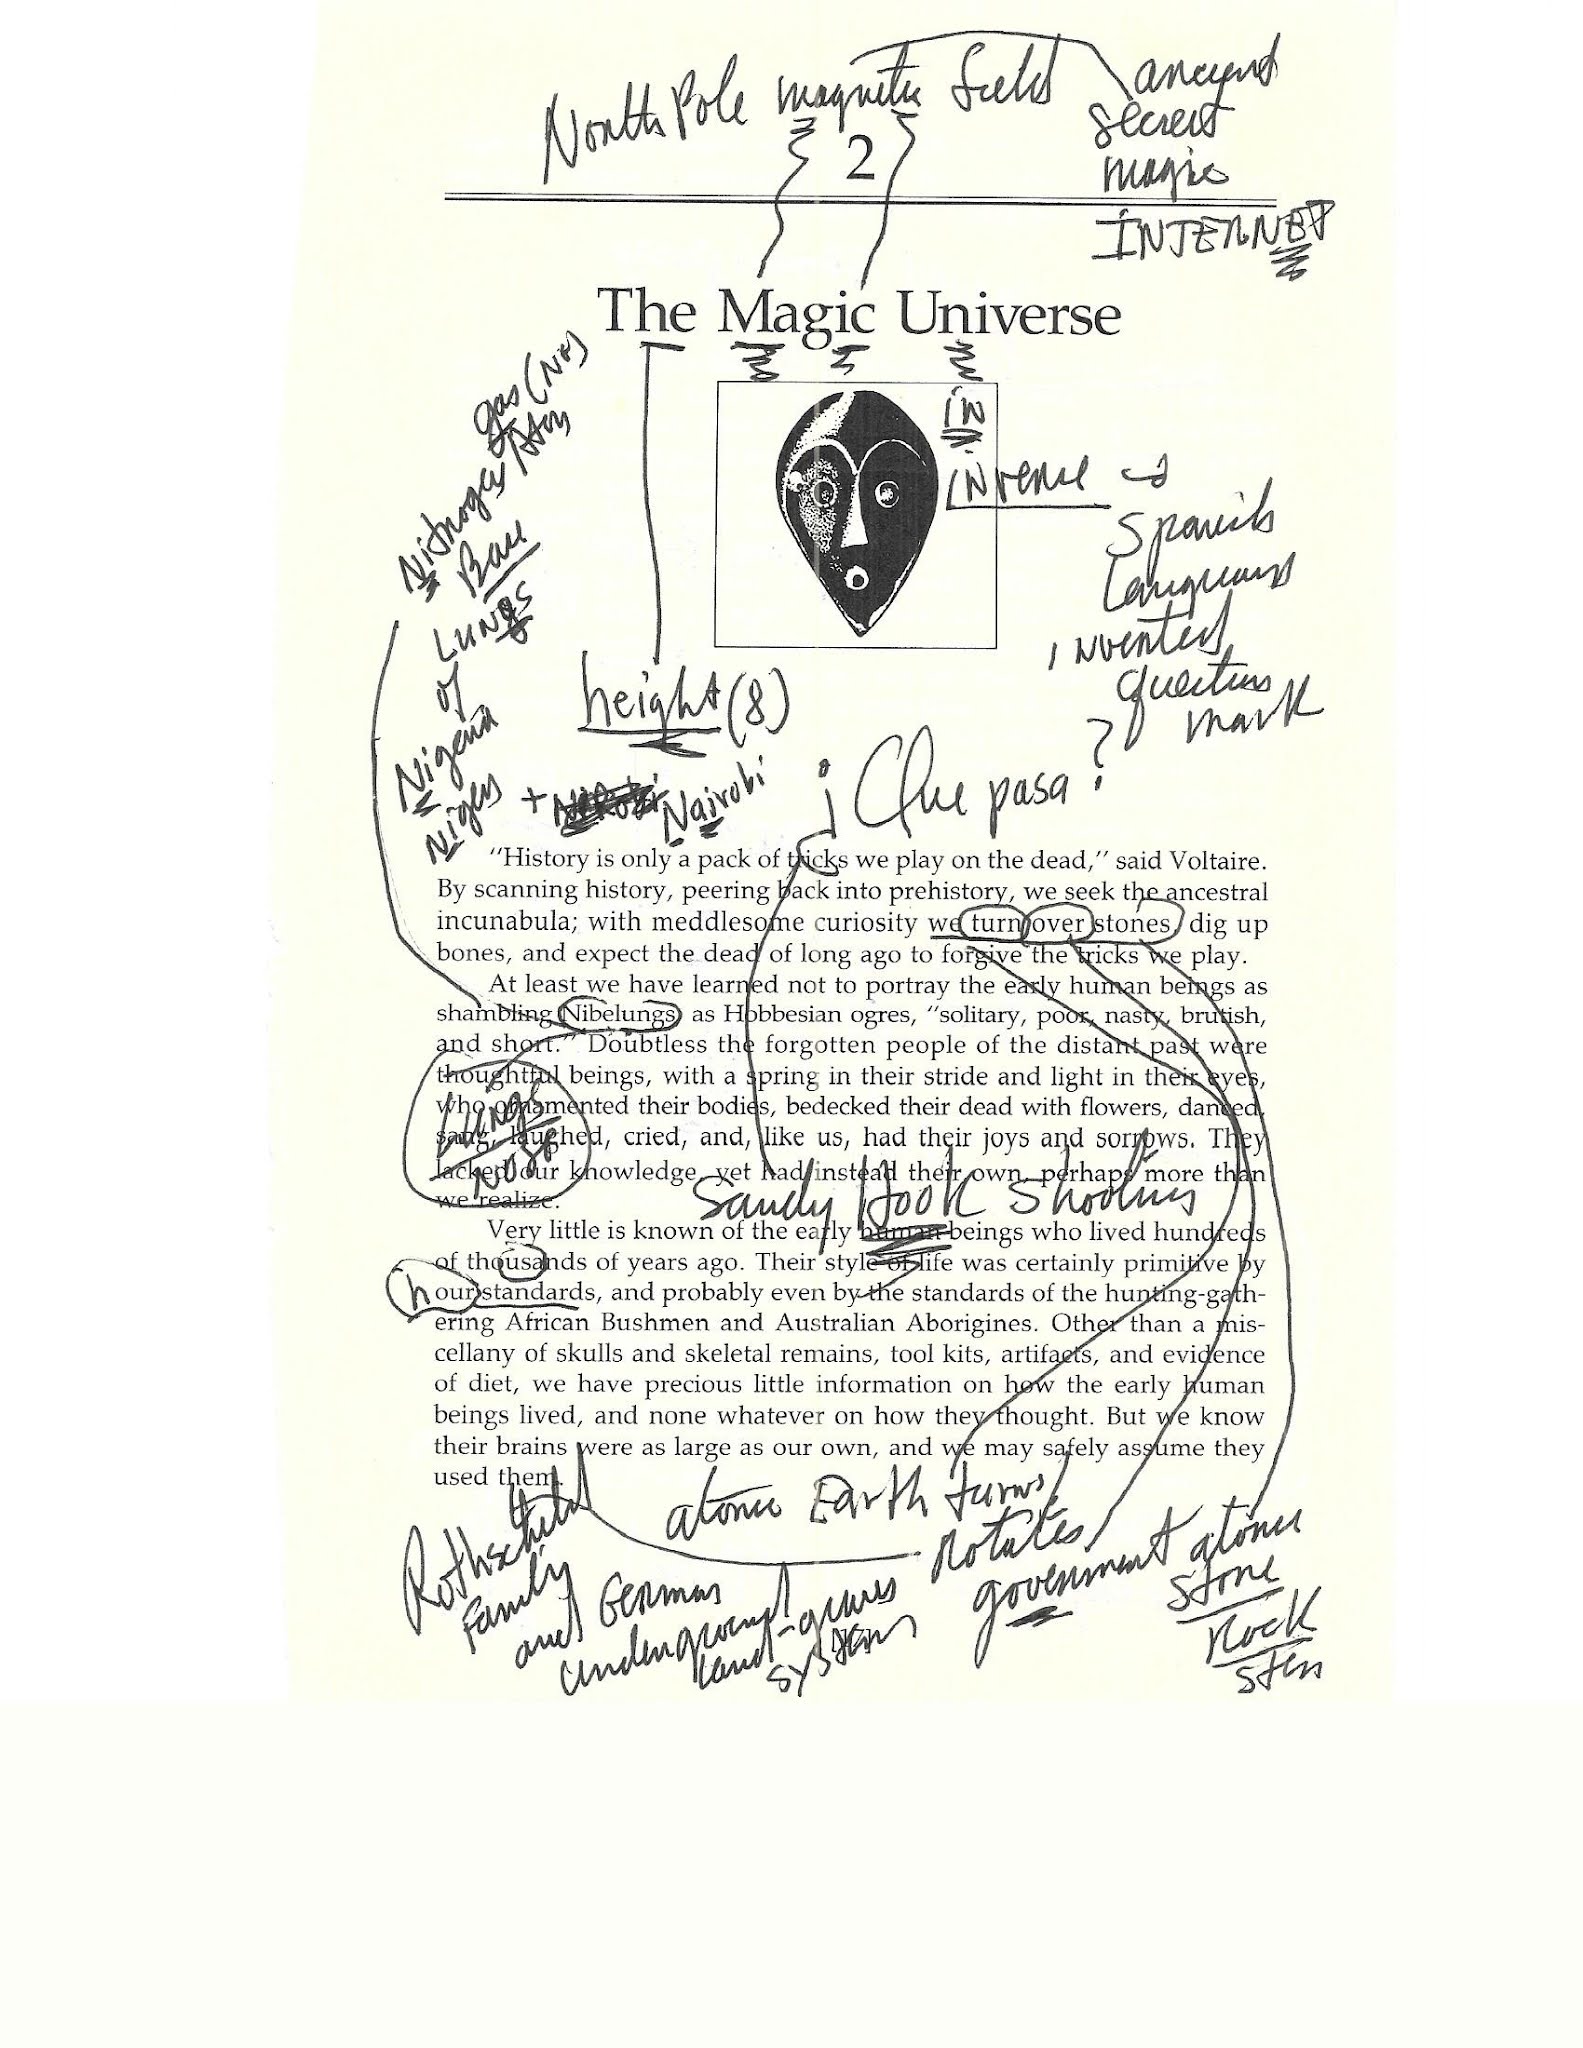 North Pole magnetic field
ancient
secret
magic
INTERNET
2
The Magic Universe
gas (NE)
Nitrogen
Base
LUNGS
of
Nigeria
Niger
+ Nairobi
height (8)
inverse →
Spanish
language
inverted
question
mark
¿ Que pasa?
"History is only a pack of tricks we play on the dead," said Voltaire.
By scanning history, peering back into prehistory, we seek the ancestral
incunabula; with meddlesome curiosity we turn over stones, dig up
bones, and expect the dead of long ago to forgive the tricks we play.
At least we have learned not to portray the early human beings as
shambling Nibelungs, as Hobbesian ogres, "solitary, poor, nasty, brutish,
and short." Doubtless the forgotten people of the distant past were
thoughtful beings, with a spring in their stride and light in their eyes,
who ornamented their bodies, bedecked their dead with flowers, danced,
sang, laughed, cried, and, like us, had their joys and sorrows. They
lacked our knowledge, yet had instead their own, perhaps more than
we realize.
Lungs
Nose
Sandy Hook Shooting
Very little is known of the early human beings who lived hundreds
of thousands of years ago. Their style of life was certainly primitive by
h our standards, and probably even by the standards of the hunting-gath-
ering African Bushmen and Australian Aborigines. Other than a mis-
cellany of skulls and skeletal remains, tool kits, artifacts, and evidence
of diet, we have precious little information on how the early human
beings lived, and none whatever on how they thought. But we know
their brains were as large as our own, and we may safely assume they
used them.
Rothschild
Family
and German
underground
land-graves
system
atomic Earth turns
rotates
government
atomic
stone
Rock